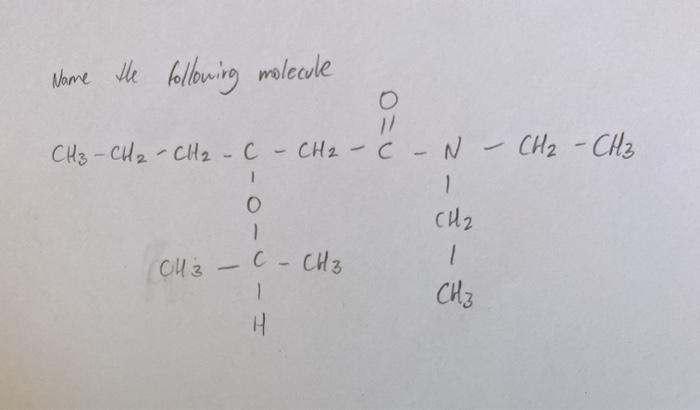 Name the following molecule
O
||
CH3 - CH2 - CH2 - C - CH2 - C - N - CH2 - CH3
| |
O CH2
| |
CH3 - C - CH3 CH3
|
H